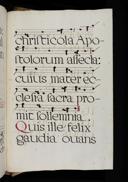 christicola Apo
stolorum assecla:
cuius mater ec
clesia sacra pro
mit sollemnia.
Quis ille felix
gaudia ouans